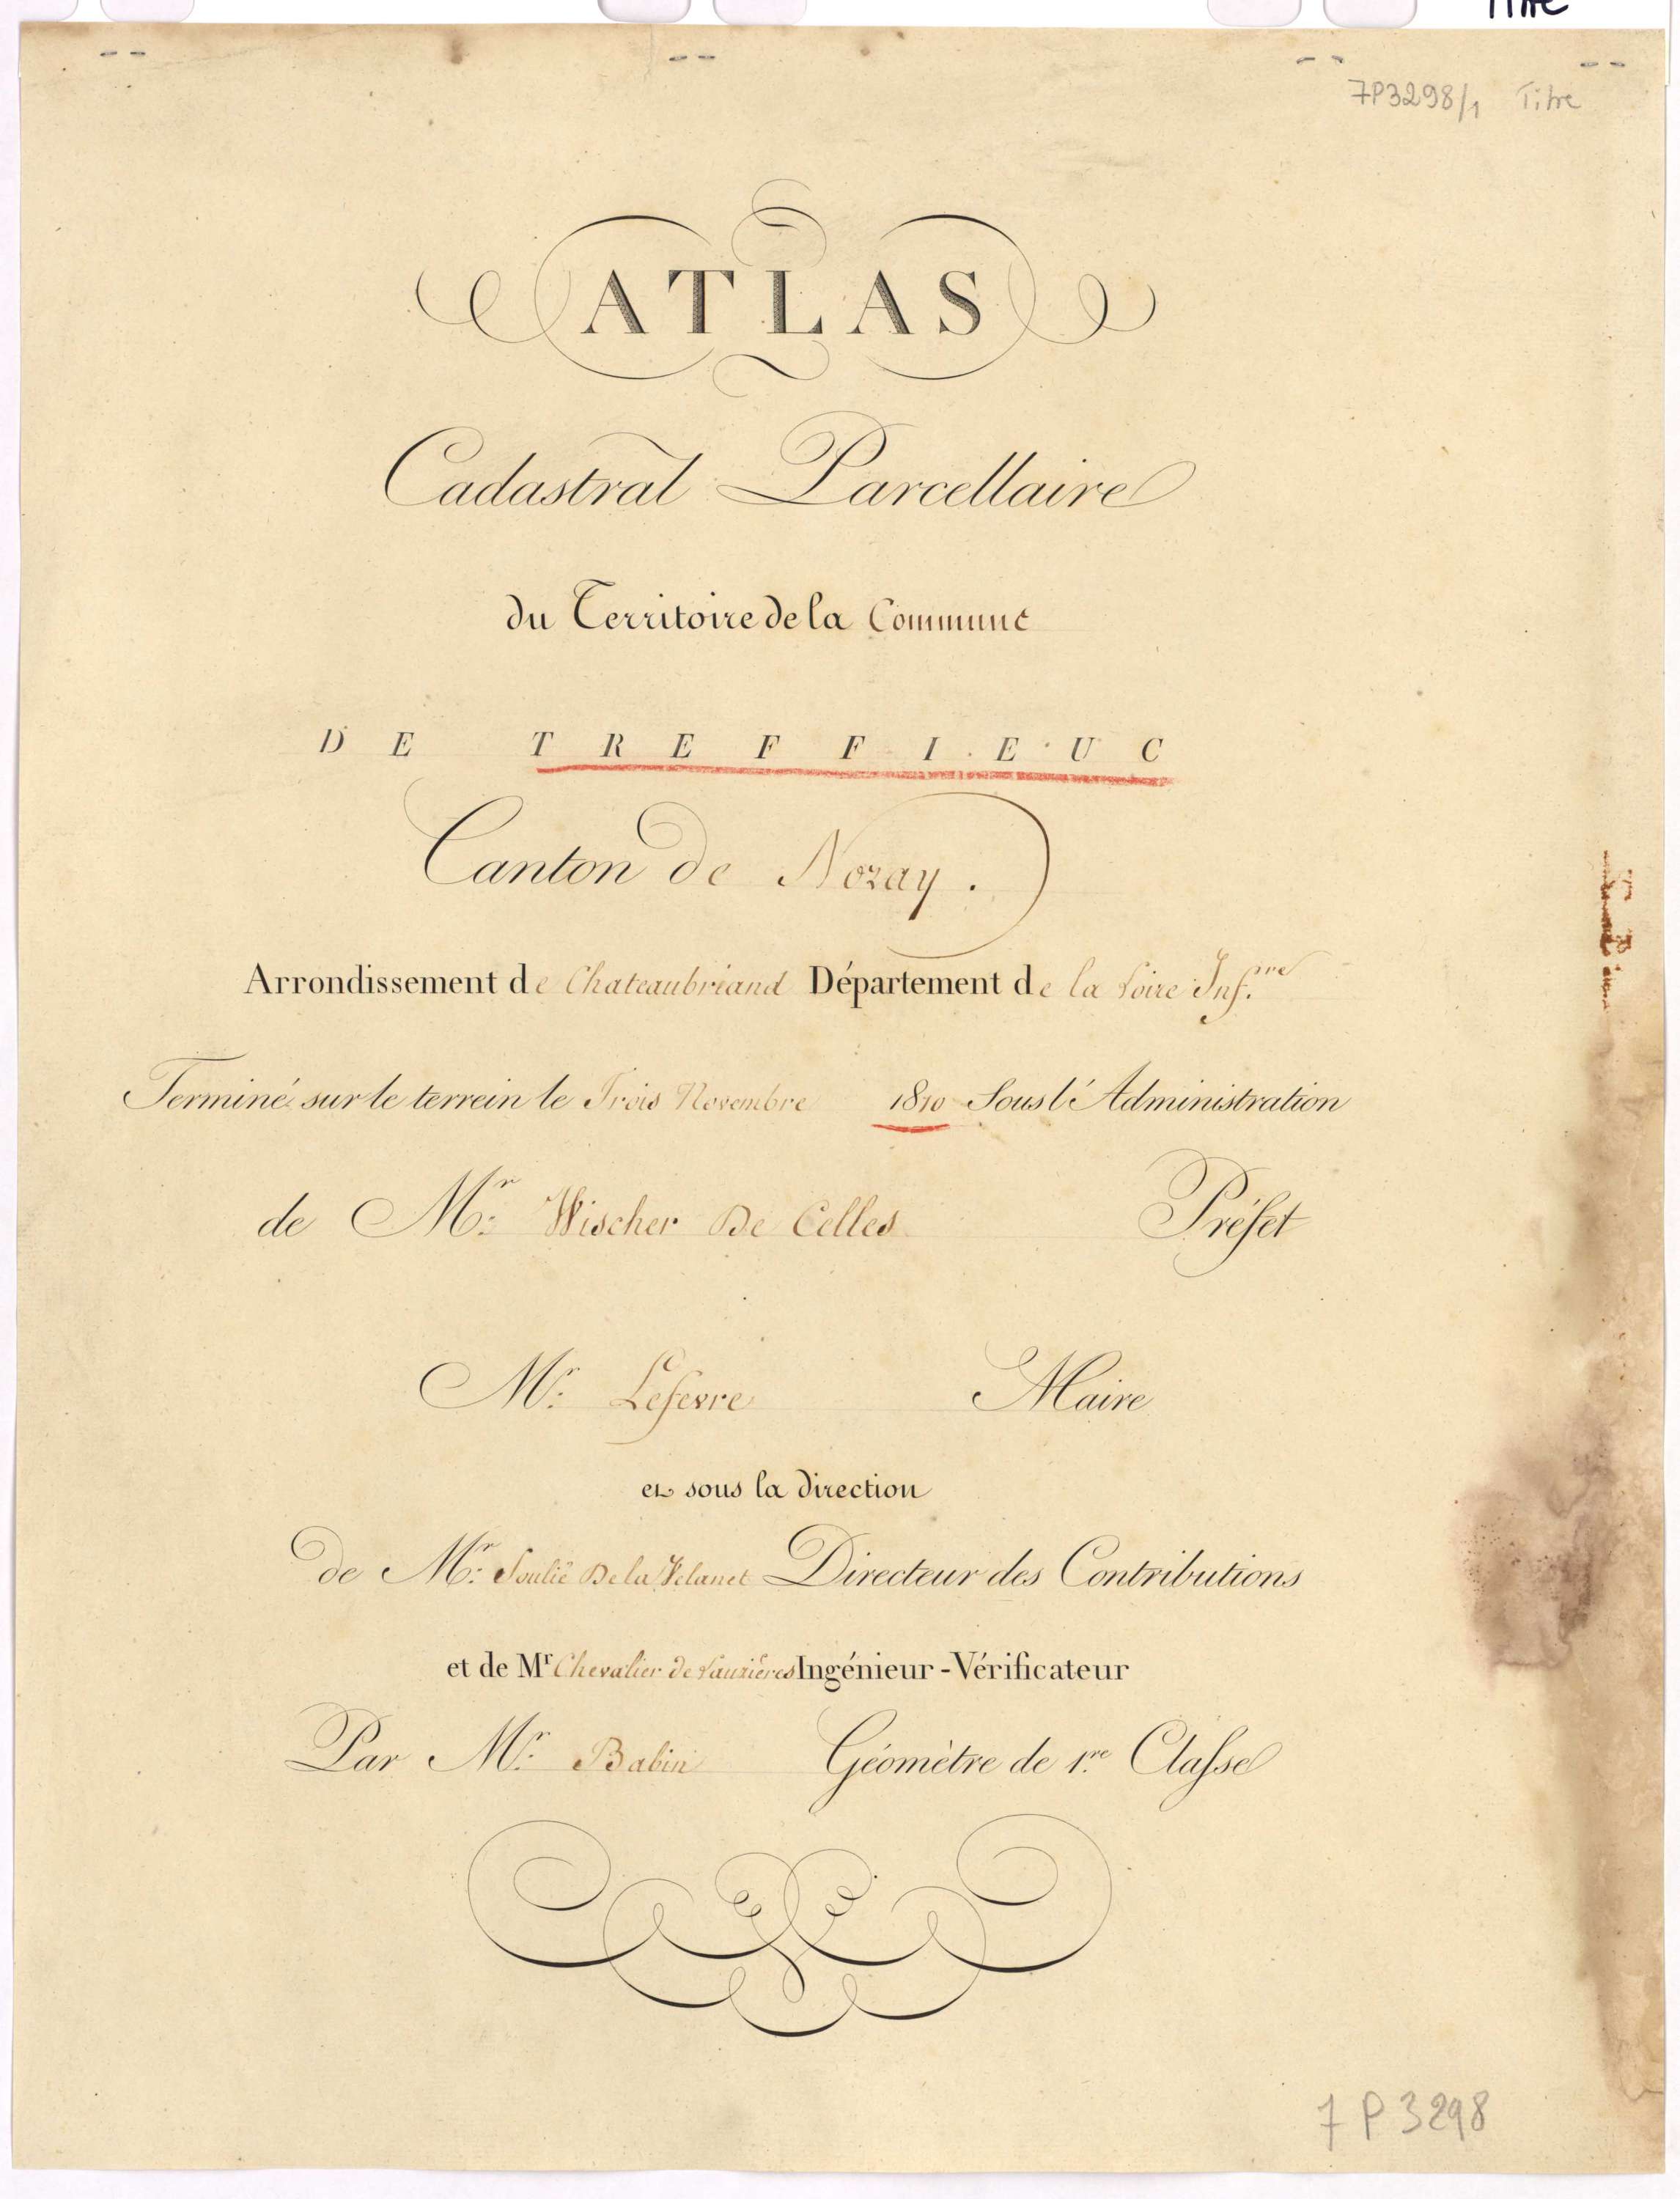 Titre
7P3298/1 Titre
ATLAS
Cadastral Parcellaire
du Territoire de la Commune
DE TREFFIEUC
Canton de Nozay.
Arrondissement de Chateaubriand Département de la Loire Inf.re
Terminé sur le terrein le Trois Novembre 1810 Sous l'Administration
de Mr: Wischer De Celles Préfet
Mr: Lefevre Maire
et sous la direction
de Mr: Soulié De la Velanet Directeur des Contributions
et de Mr Chevalier de Lauzières Ingénieur-Vérificateur
Par Mr: Babin Géomètre de 1.re Classe
7 P 3298